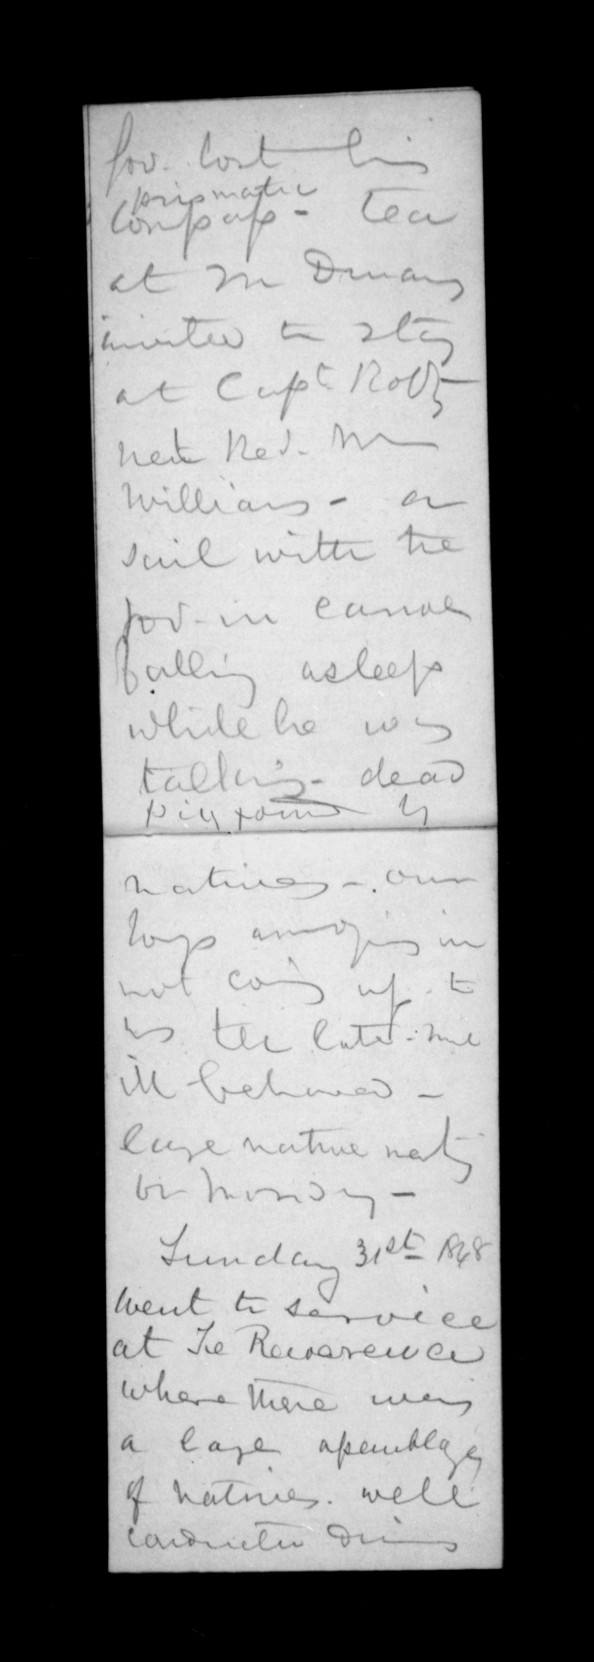 Gov. lost his
prismatic
compass - tea
at Mr
invited to stay
at Capt
next Rev. Mr
Williams - a
sail with the
Gov. in canoe
falling asleep
while he was
talking - dead
pig found by
natives - our
boys annoying in
not coming up to
us till late.
ill behaved -
large native meeting
on Monday -
Sunday 31st 1848
Went to service
at Te Rewarewa
where there was
a large assemblage
of natives. well
conducted during